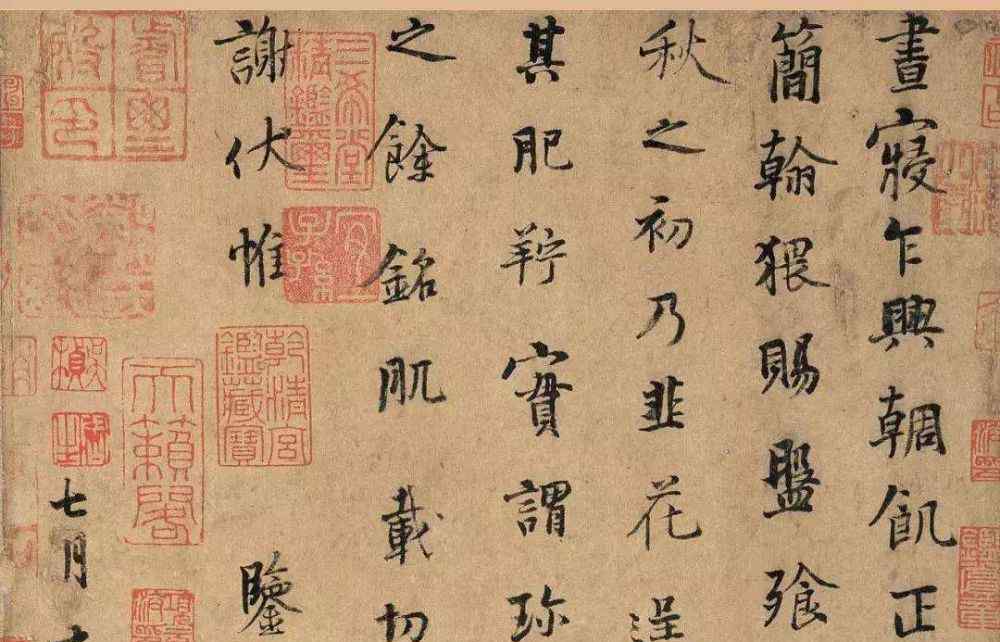 晝寢乍興輖飢正
簡翰猥賜盤飧
秋之初乃韭花逞
其肥羜實謂珍
之餘銘肌載切
謝伏惟　鑒
七月
三希堂精鑑璽
宜子孫
乾清宮鑑藏寶
天籟閣